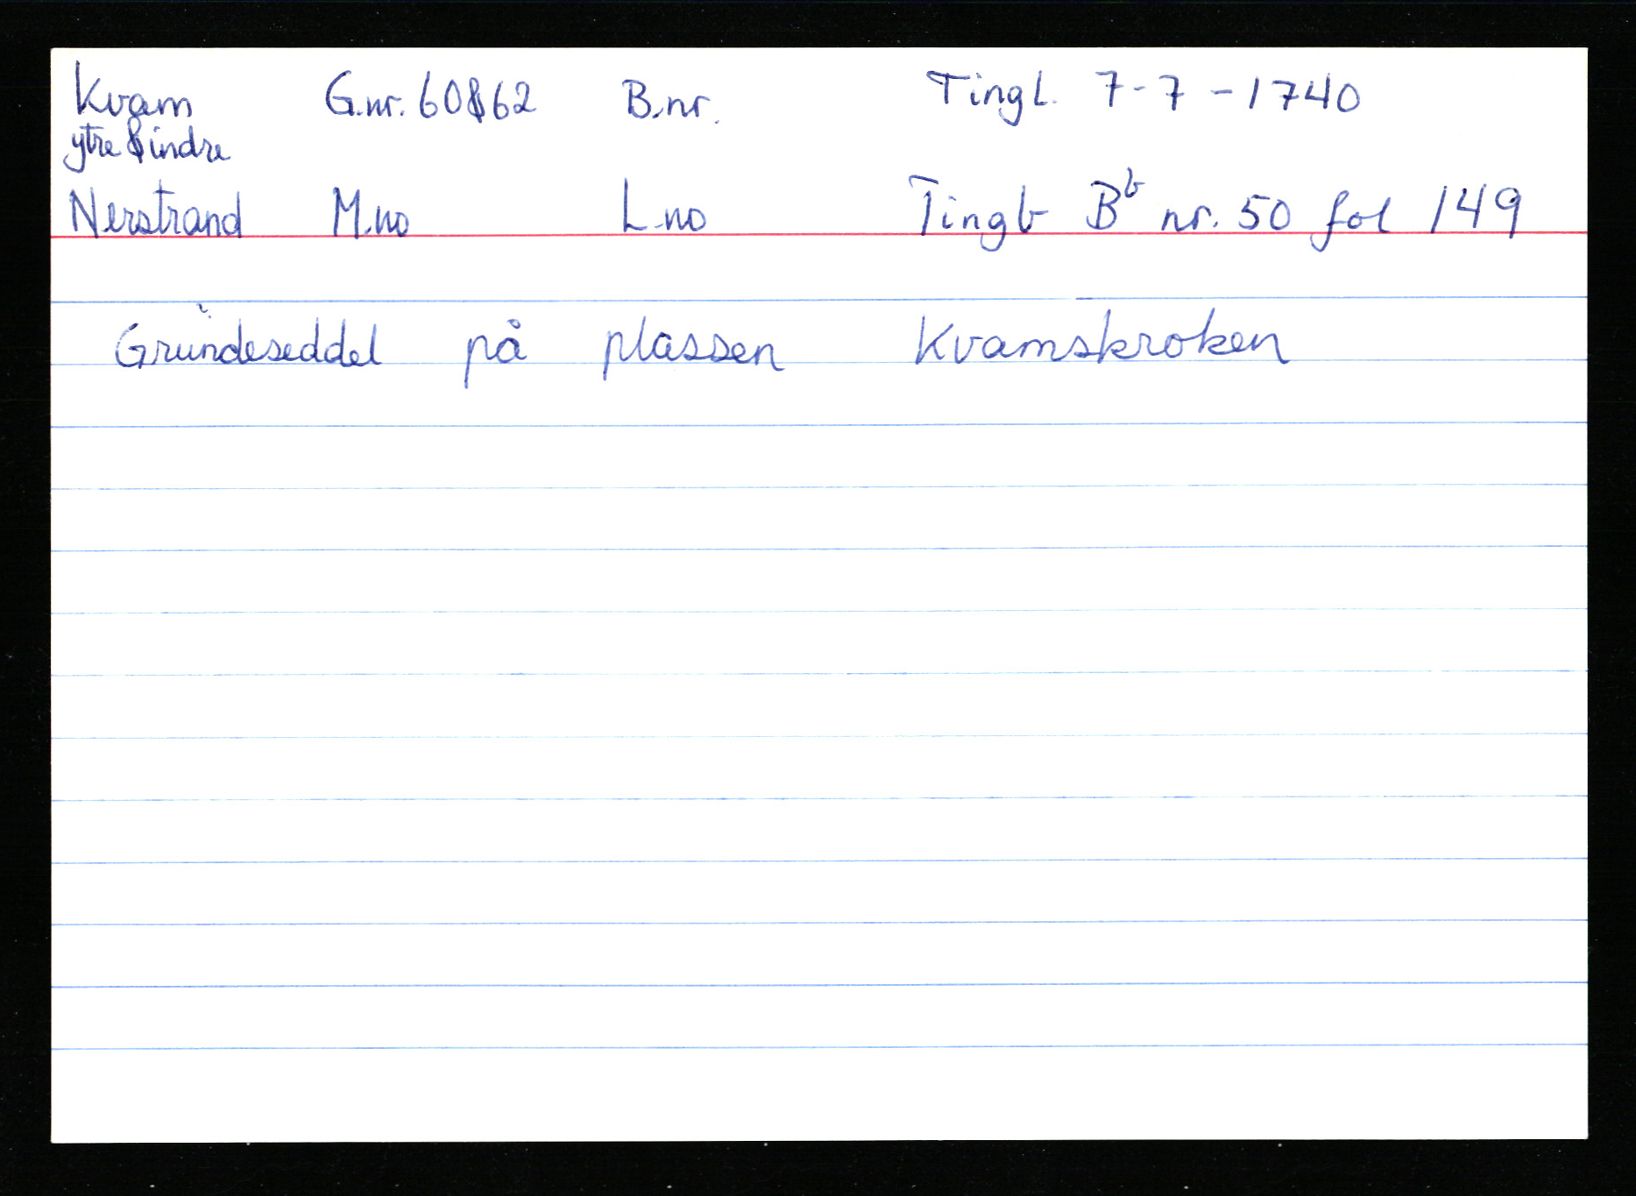 Kvam G.nr. 60&62 B.nr. Tingl. 7-7-1740
ytre & indre
Nerstrand M.no L.no Tingb Bb nr. 50 fol 149
Grundeseddel på plassen Kvamskroken